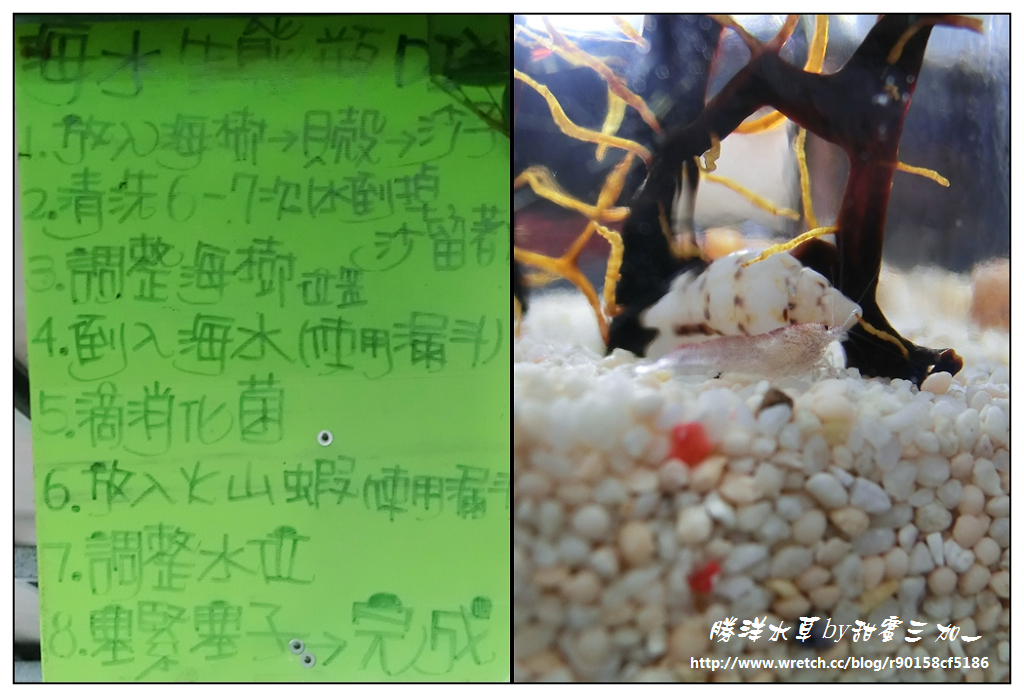 海水生態瓶DIY
1.放入海樹→貝殼→沙子
2.清洗6-7次(水倒掉
沙留著
3.調整海樹位置
4.倒入海水(使用漏斗)
5.滴消化菌
6.放入火山蝦(使用漏斗
7.調整水位
8.轉緊蓋子→完成
勝洋水草by甜蜜三加一
http://www.wretch.cc/blog/r90158cf5186